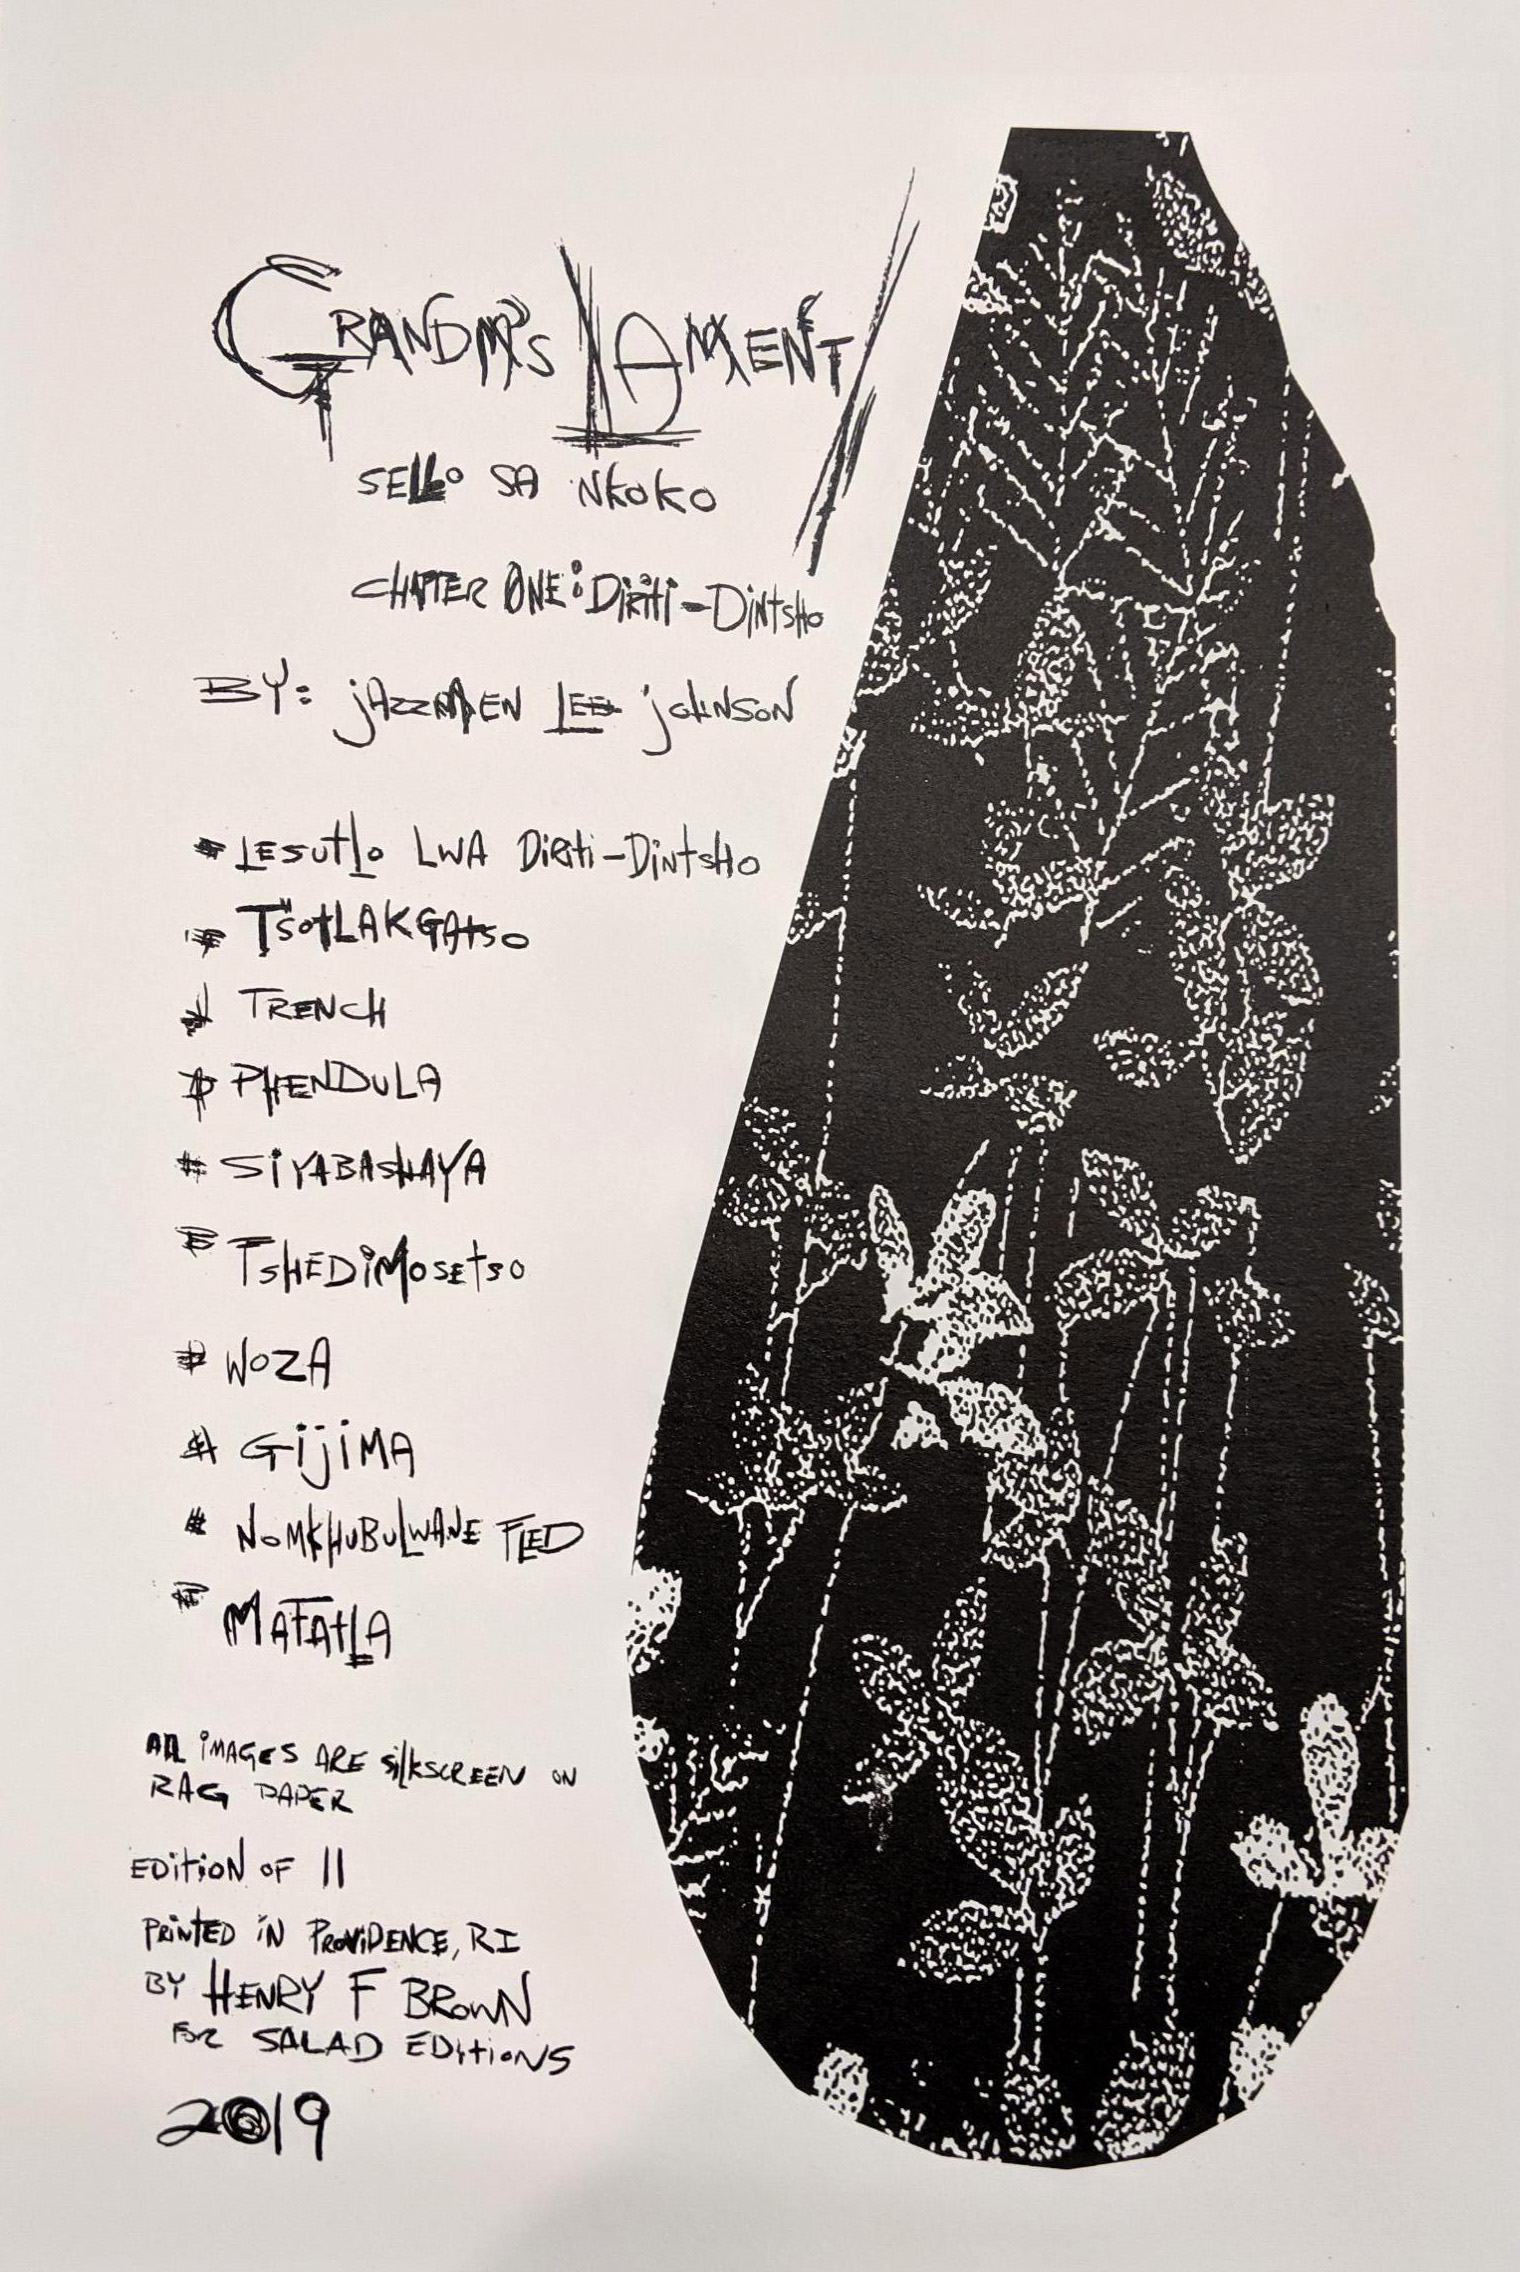 GRANDM'S LAMENT
SELLO SA NKOKO
CHAPTER ONE: DiRiti-DiNtSHO
BY: jAZZMEN LEE joHNSON
# LESUtLo LWA DiRiti-DiNtSHO
# TSotLAKGAtso
# TRENCH
# PHENDULA
# SiYABASHAYA
# TSHEDiMosEtso
# WOZA
# GijiMA
# NOMKHUBULWANE FLED
# MAFAtLA
ALL iMAGES ARE SiLKSCREEN ON
RAG PAPER
EDitiON OF 11
PRiNTED iN PROViDENCE, RI
BY HENRY F BROWN
FOR SALAD EDitiONS
2019